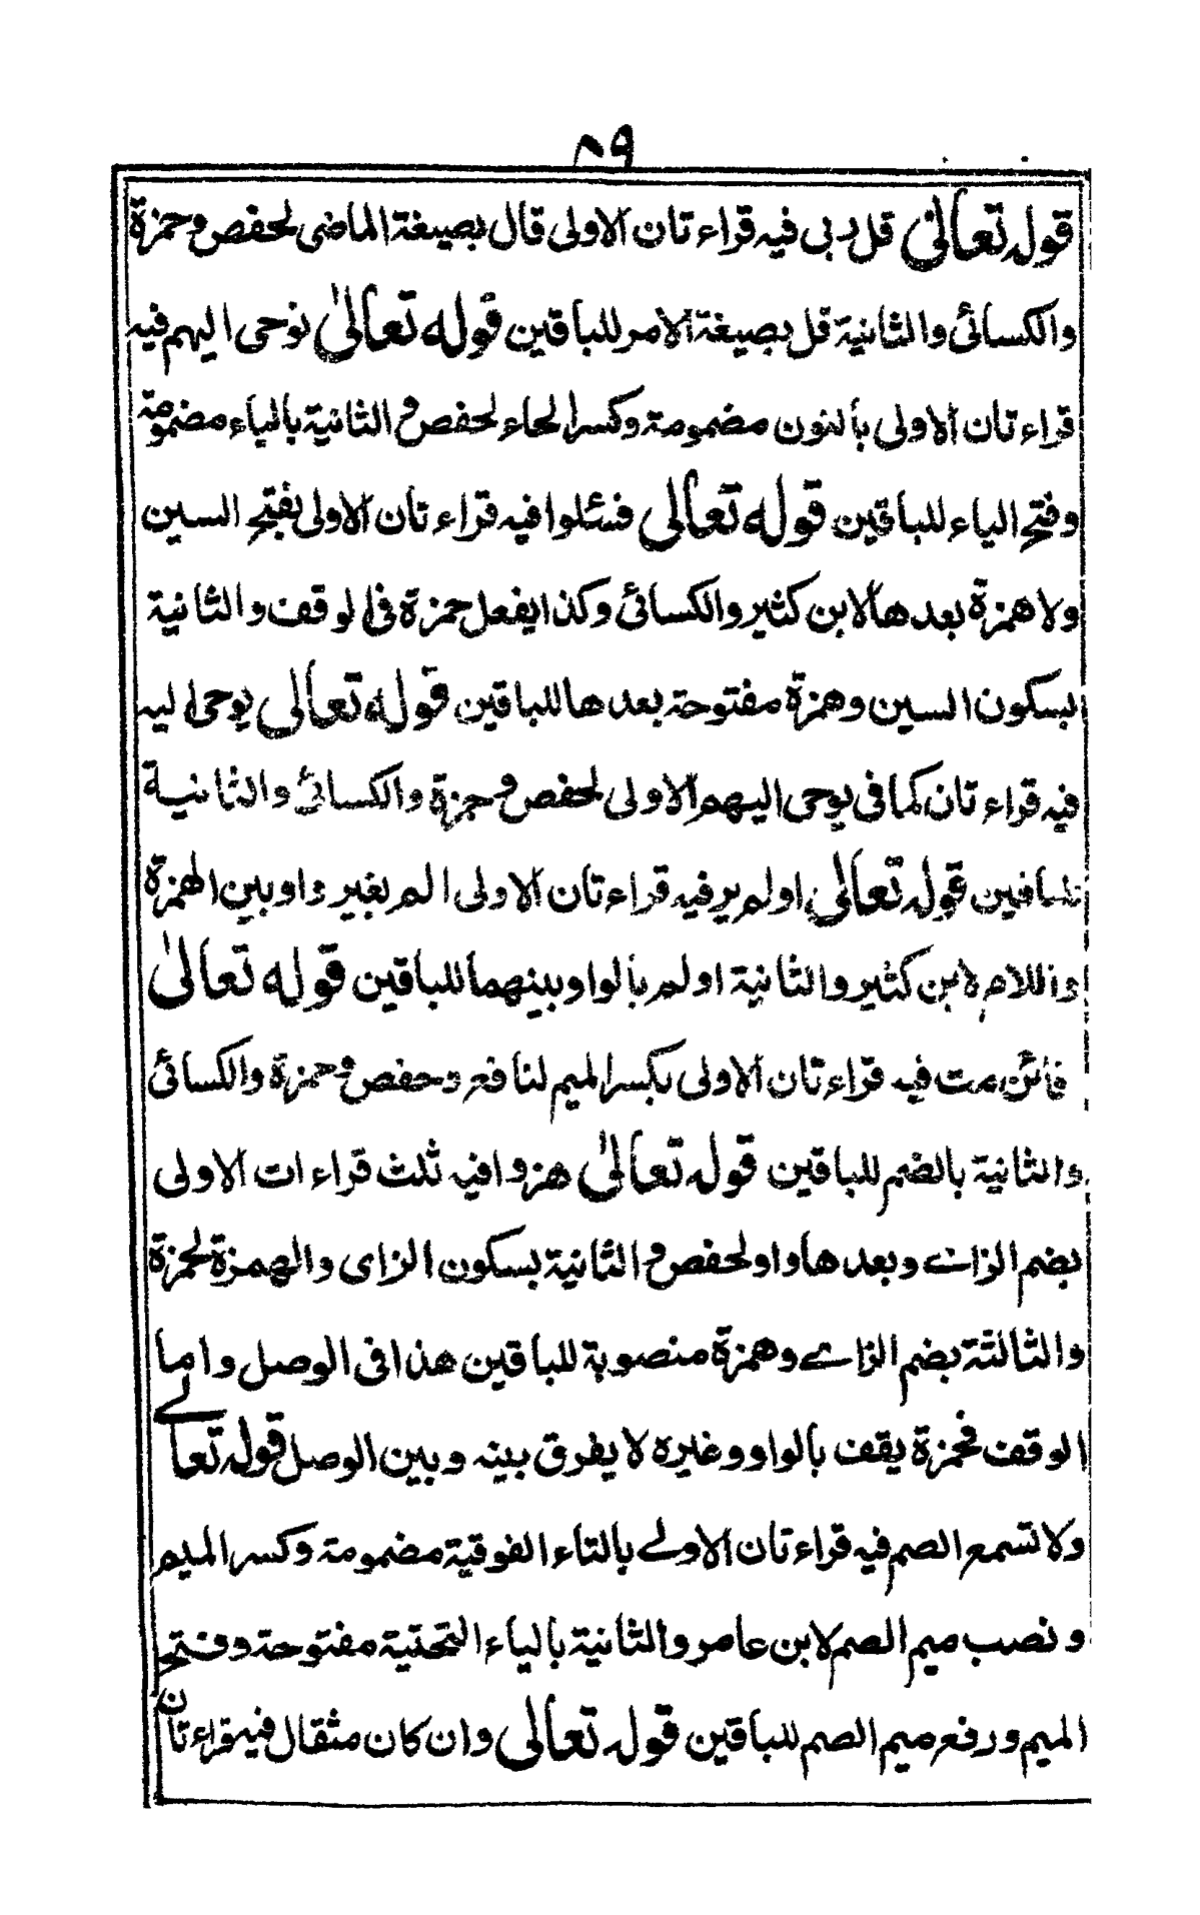 ٨٩
قوله تعالى قل ربى فيه قراءتان الاولى قال بصيغة الماضى لحفص وحمزة
والكسائى والثانية قل بصيغة الامر للباقين قوله تعالىٰ نوحى اليهم فيه
قراءتان الاولى بالنون مضمومة وكسر الحاء لحفص و الثانية بالياء مضمومة
وفتح الياء للباقين قوله تعالى فسئلوا فيه قراءتان الاولى بفتح السين
ولا همزة بعدها لابن كثير والكسائى وكذا يفعل حمزة فى الوقف والثانية
بسكون السين وهمزة مفتوحة بعدها للباقين قوله تعالى يوحى اليه
فيه قراءتان كما فى يوحى اليهم الاولى لحفص و حمزة والكسائى والثانية
للباقين قوله تعالىٰ اولم ير فيه قراءتان الاولى الم بغير واو بين الهمزة
واللام لابن كثير والثانية اولم بالواو بينهما للباقين قوله تعالىٰ
فائن مت فيه قراءتان الاولى بكسر الميم لنافع وحفص و حمزة والكسائى
والثانية بالضم للباقين قوله تعالىٰ هزوا فيه ثلث قراءات الاولى
بضم الزاے وبعدها واو لحفص و الثانية بسكون الزاى والهمزة لحمزة
والثالثة بضم الزاے وهمزة منصوبة للباقين هذا فى الوصل واما
الوقف فحمزة يقف بالواو وغيره لا يفرق بينه وبين الوصل قوله تعالے
ولا تسمع الصم فيه قراءتان الاولے بالتاء الفوقية مضمومة وكسر الميم
ونصب ميم الصم لابن عامر والثانية بالياء التحتية مفتوحة وفتح
الميم ورفع ميم الصم للباقين قوله تعالى وان كان مثقال فيه قراءتان